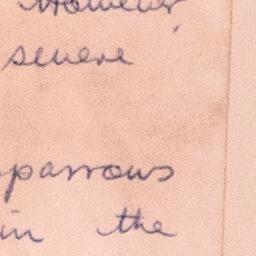 However,
severe
sparrows
in the